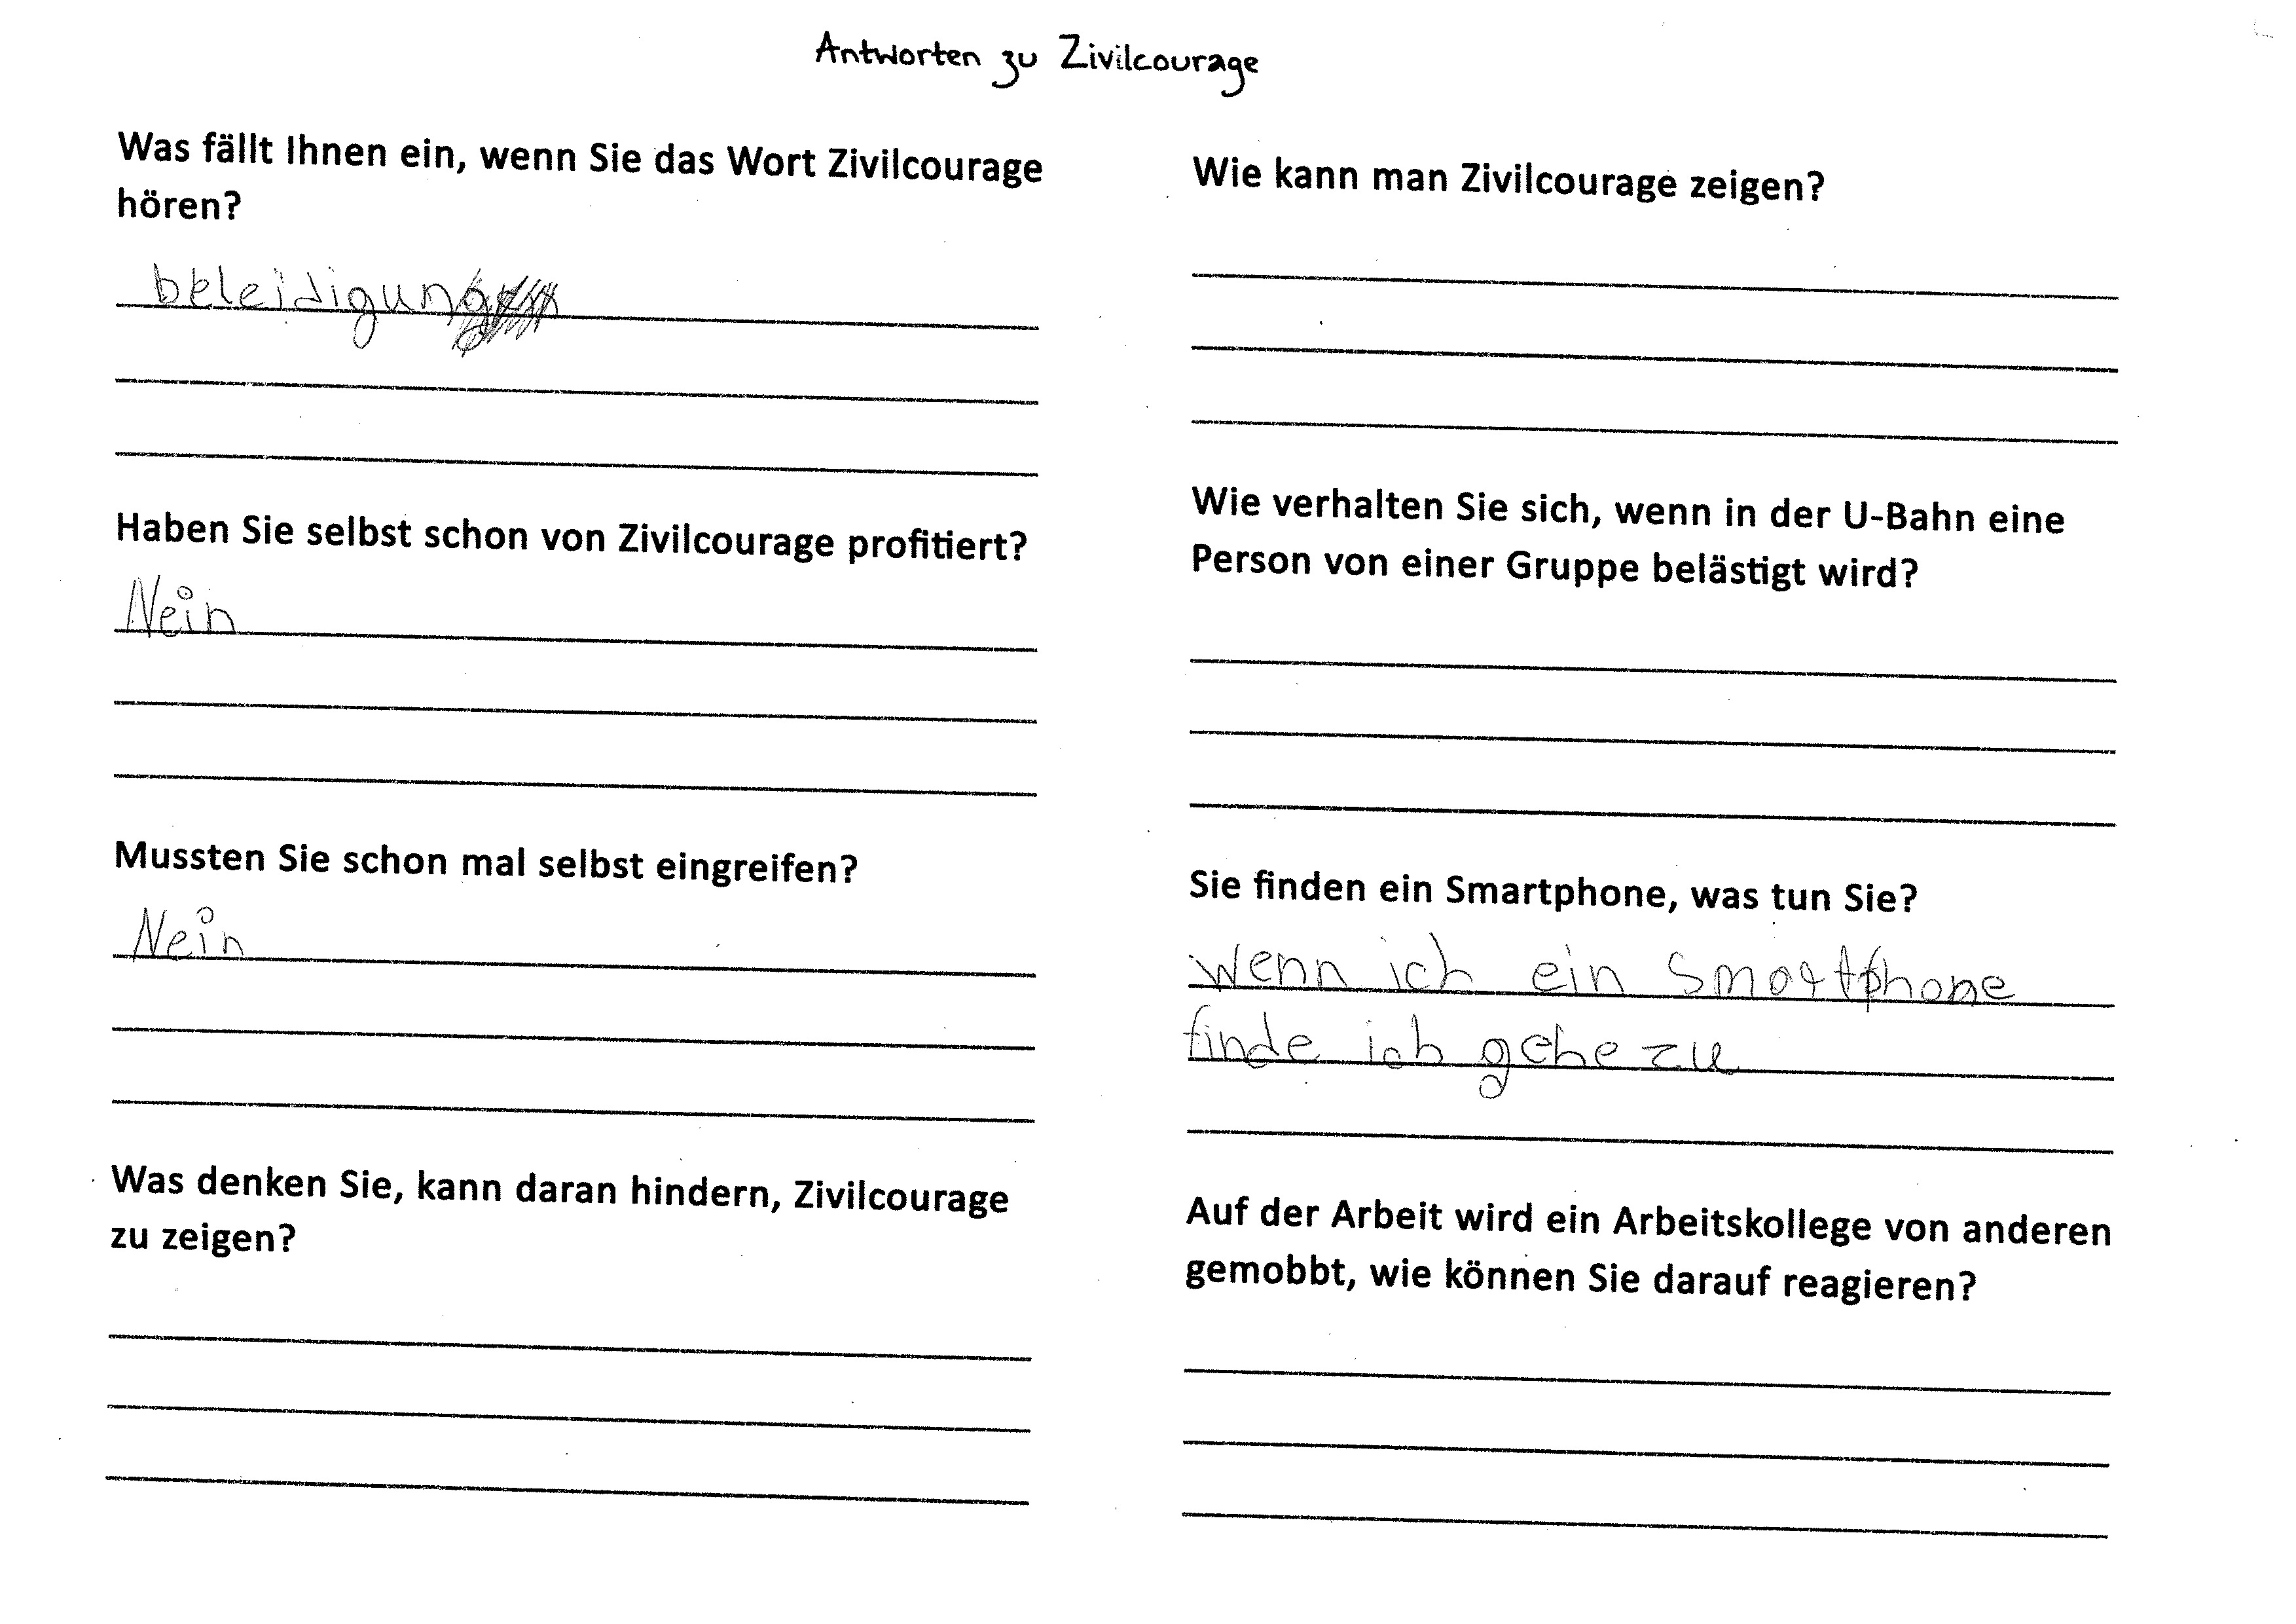 Antworten zu Zivilcourage
Was fällt Ihnen ein, wenn Sie das Wort Zivilcourage
hören?
beleidigung
Haben Sie selbst schon von Zivilcourage profitiert?
Nein
Mussten Sie schon mal selbst eingreifen?
Nein
Was denken Sie, kann daran hindern, Zivilcourage
zu zeigen?
Wie kann man Zivilcourage zeigen?
Wie verhalten Sie sich, wenn in der U-Bahn eine
Person von einer Gruppe belästigt wird?
Sie finden ein Smartphone, was tun Sie?
Wenn ich ein Smartphone
finde ich gehe zu
Auf der Arbeit wird ein Arbeitskollege von anderen
gemobbt, wie können Sie darauf reagieren?